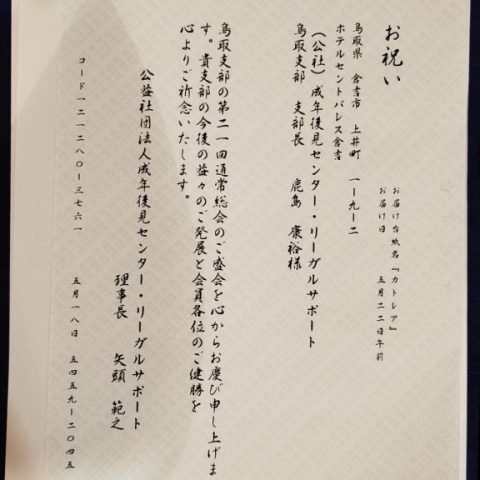 お祝い
お届け台紙名『カトレア』
お届け日　五月二二日午前
鳥取県　倉吉市　上井町　一ー九ー二
ホテルセントパレス倉吉
(公社)成年後見センター・リーガルサポート
鳥取支部　支部長　鹿島　康裕様
鳥取支部の第二一回通常総会のご盛会を心からお慶び申し上げま
す。貴支部の今後の益々のご発展と会員各位のご健勝を
心よりご祈念いたします。
公益社団法人成年後見センター・リーガルサポート
理事長　矢頭　範之
コード一二一二八〇ー三七六一　五月一八日　五四五九ー二〇四五